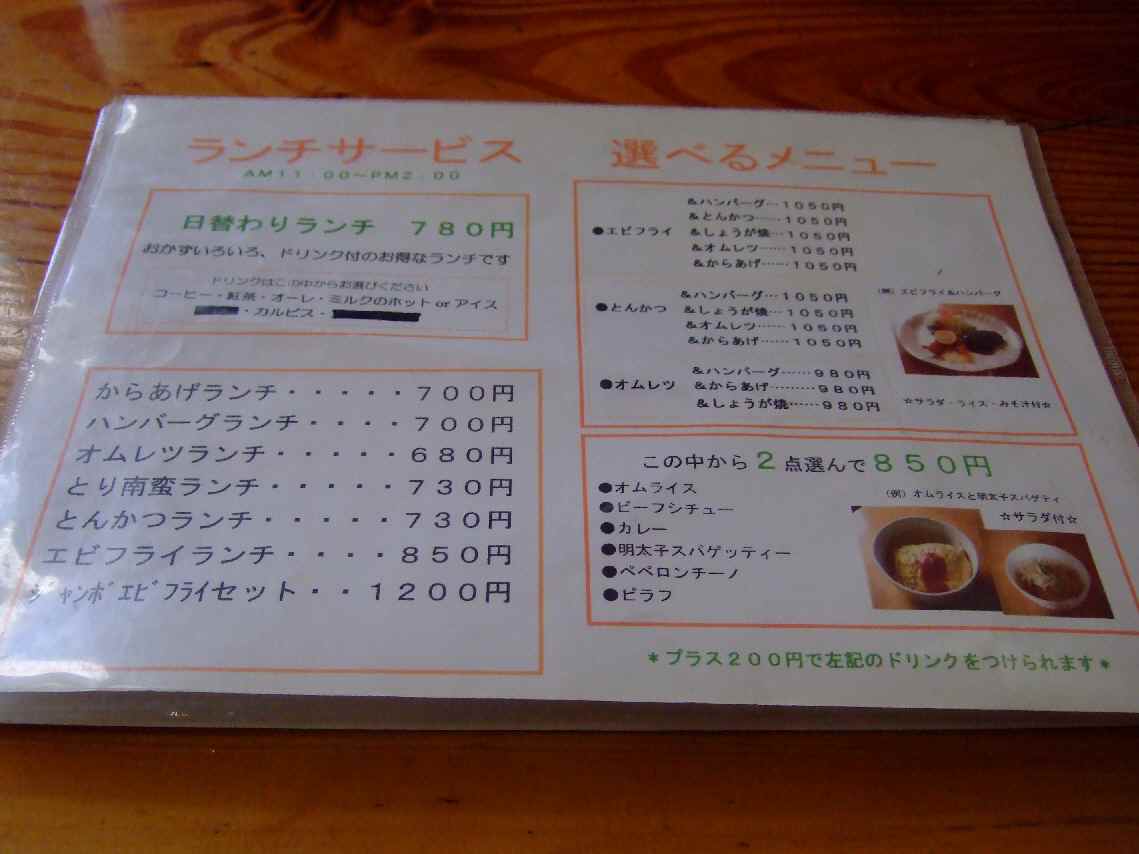 ランチサービス
AM11:00～PM2:00
日替わりランチ　780円
おかずいろいろ、ドリンク付のお得なランチです
ドリンクはこの中からお選びください
コーヒー・紅茶・オーレ・ミルクのホット or アイス
・カルピス・
からあげランチ・・・・・700円
ハンバーグランチ・・・・700円
オムレツランチ・・・・・680円
とり南蛮ランチ・・・・・730円
とんかつランチ・・・・・730円
エビフライランチ・・・・850円
ジャンボエビフライセット・・1200円
選べるメニュー
&ハンバーグ…1050円
&とんかつ……1050円
●エビフライ &しょうが焼…1050円
&オムレツ……1050円
&からあげ……1050円
&ハンバーグ…1050円
●とんかつ &しょうが焼…1050円
&オムレツ……1050円
&からあげ……1050円
&ハンバーグ……980円
●オムレツ &からあげ………980円
&しょうが焼……980円
(例) エビフライ&ハンバーグ
☆サラダ・ライス・みそ汁付☆
この中から2点選んで850円
●オムライス
●ビーフシチュー
●カレー
●明太子スパゲッティー
●ペペロンチーノ
●ピラフ
(例) オムライスと明太子スパゲティ
☆サラダ付☆
*プラス200円で左記のドリンクをつけられます*